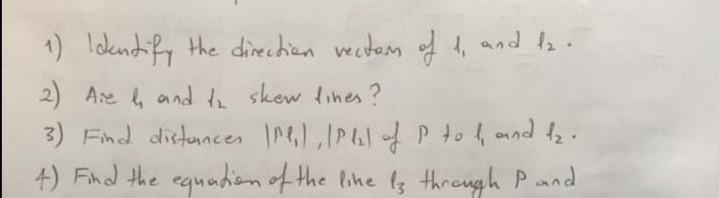 1) Identify the direction vectors of l₁ and l₂.
2) Are l₁ and l₂ skew lines?
3) Find distances |Pl₁|, |Pl₂| of P to l₁ and l₂.
4) Find the equation of the line l₃ through P and